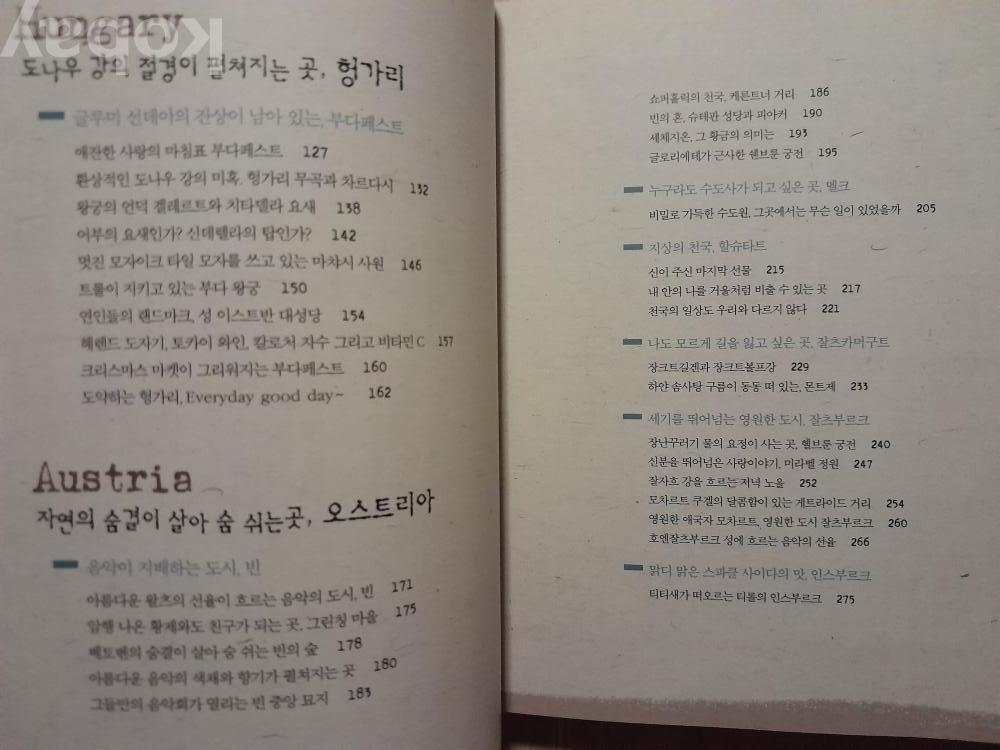 Hungary
도나우 강의 절경이 펼쳐지는 곳, 헝가리
글루미 선데이의 잔상이 남아 있는, 부다페스트
애잔한 사랑의 마침표 부다페스트 127
환상적인 도나우 강의 미혹, 헝가리 무곡과 차르다시 132
왕궁의 언덕 겔레르트와 치타델라 요새 138
어부의 요새인가? 신데렐라의 탑인가? 142
멋진 모자이크 타일 모자를 쓰고 있는 마챠시 사원 146
트롤이 지키고 있는 부다 왕궁 150
연인들의 랜드마크, 성 이스트반 대성당 154
헤렌드 도자기, 토카이 와인, 칼로처 자수 그리고 비타민 C 157
크리스마스 마켓이 그리워지는 부다페스트 160
도약하는 헝가리, Everyday good day~ 162
Austria
자연의 숨결이 살아 숨 쉬는 곳, 오스트리아
음악이 지배하는 도시, 빈
아름다운 왈츠의 선율이 흐르는 음악의 도시, 빈 171
암행 나온 황제와도 친구가 되는 곳, 그린칭 마을 175
베토벤의 숨결이 살아 숨 쉬는 빈의 숲 178
아름다운 음악의 색채와 향기가 펼쳐지는 곳 180
그들만의 음악회가 열리는 빈 중앙 묘지 183
쇼퍼홀릭의 천국, 케른트너 거리 186
빈의 혼, 슈테판 성당과 피아커 190
세체지온, 그 황금의 의미는 193
글로리에테가 근사한 쉔브룬 궁전 195
누구라도 수도사가 되고 싶은 곳, 멜크
비밀로 가득한 수도원, 그곳에서는 무슨 일이 있었을까 205
지상의 천국, 할슈타트
신이 주신 마지막 선물 215
내 안의 나를 거울처럼 비출 수 있는 곳 217
천국의 일상도 우리와 다르지 않다 221
나도 모르게 길을 잃고 싶은 곳, 잘츠카머구트
장크트길겐과 장크트볼프강 229
하얀 솜사탕 구름이 동동 떠 있는, 몬트제 233
세기를 뛰어넘는 영원한 도시, 잘츠부르크
장난꾸러기 물의 요정이 사는 곳, 헬브룬 궁전 240
신분을 뛰어넘은 사랑이야기, 미라벨 정원 247
잘자흐 강을 흐르는 저녁 노을 252
모차르트 쿠겔의 달콤함이 있는 게트라이드 거리 254
영원한 애국자 모차르트, 영원한 도시 잘츠부르크 260
호엔잘츠부르크 성에 흐르는 음악의 선율 266
맑디 맑은 스파클 사이다의 맛, 인스부르크
티티새가 떠오르는 티롤의 인스부르크 275